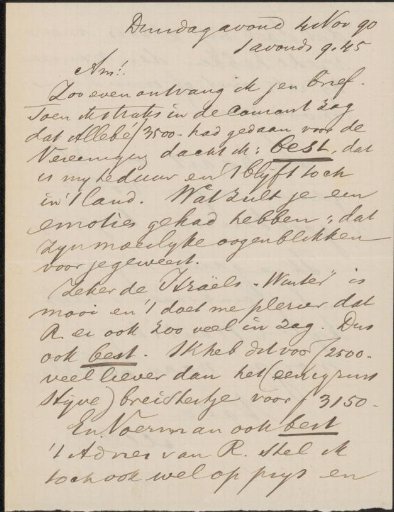 Dinsdagavond 4 Nov 90
's avonds 9.45
Am!
Zoo even ontvang ik jen brief.
Toen ik straks in de Courant zag
dat Allebé f 3500.- had gedaan voor de
Vereeniging dacht ik: best, dat
is my te duur en 't blyft toch
in 't land. Wat zult je een
emoties gehad hebben; dat
zyn moeilyke oogenblikken
voor je geweest.
Zeker de Israëls "Winter" is
mooi en 't doet me plezier dat
R. er ook zoo veel in zag. Dus
ook best. Ik heb dit voor f 2500.-
veel liever dan het (eenigzins
styve) breistertje voor f 3150.-
En Voerman ook best
't Advies van R. stel ik
toch ook wel op prys en